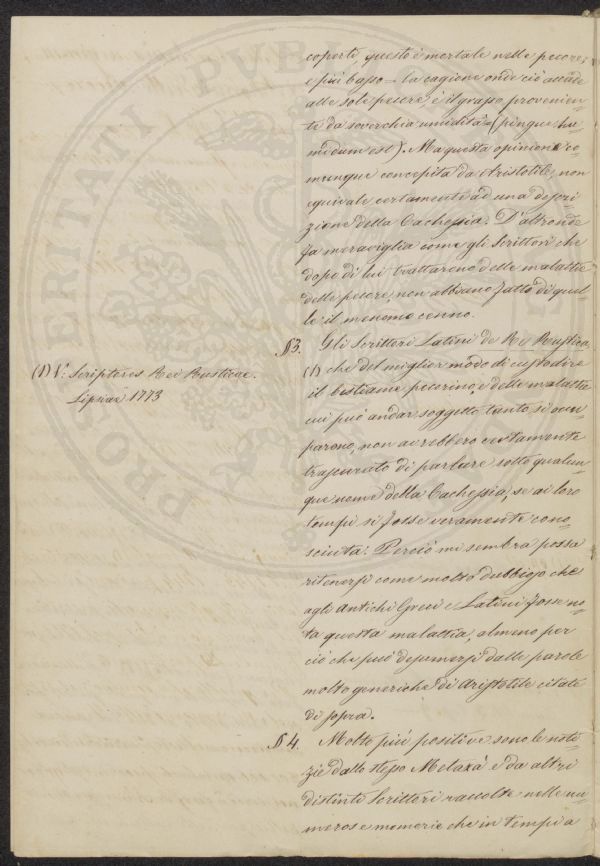 coperti, questo è mortale nelle pecore;
e più basso = la cagione onde ciò accade
alle sole pecore, è il grasso provenien=
te da soverchia umidità = (pingue hu=
midum est). Ma questa opinione co=
munque concepita da Aristotile, non
equivale certamente ad una descri=
zione della Cachessia. D'altronde
fa meraviglia come gli Scrittori che
dopo di lui trattarono delle malattie
delle pecore, non abbiano fatto di quel=
le il menomo cenno.
§ 3. Gli Scrittori Latini de Re Rustica
(1) che del miglior modo di custodire
il bestiame pecorino, e delle malattie
cui può andar soggetto tanto si occu=
parono, non avrebbero certamente
trascurato di parlare sotto qualun=
que nome della Cachessia, se ai loro
tempi si fosse veramente cono=
sciuta: Perciò mi sembra possa
ritenersi come molto dubbioso che
agli Antichi Greci e Latini fosse no=
ta questa malattia, almeno per
ciò che può desumersi dalle parole
molto generiche di Aristotile citate
di sopra.
§ 4. Molto più positive sono le noti=
zie dallo stesso Metaxà e da altri
distinti Scrittori raccolte nelle nu=
merose memorie che in tempi a
(1) V: Scriptores Rei Rusticae.
Lipsiae 1773
PRO VERITATI PVB